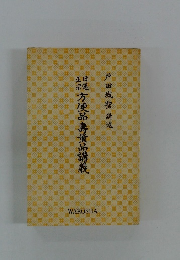 戸田城聖 講述
日蓮
正宗 方便品寿量品講義